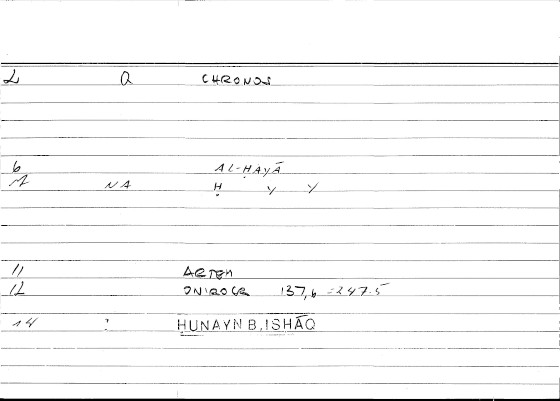 2 Q CHRONOS
6 AL-ḤAYĀ
7 NA Ḥ Y Y
11 ARTEM
12 ONIROCR 137,6 = 247.5
14 : ḤUNAYN B. ISḤĀQ